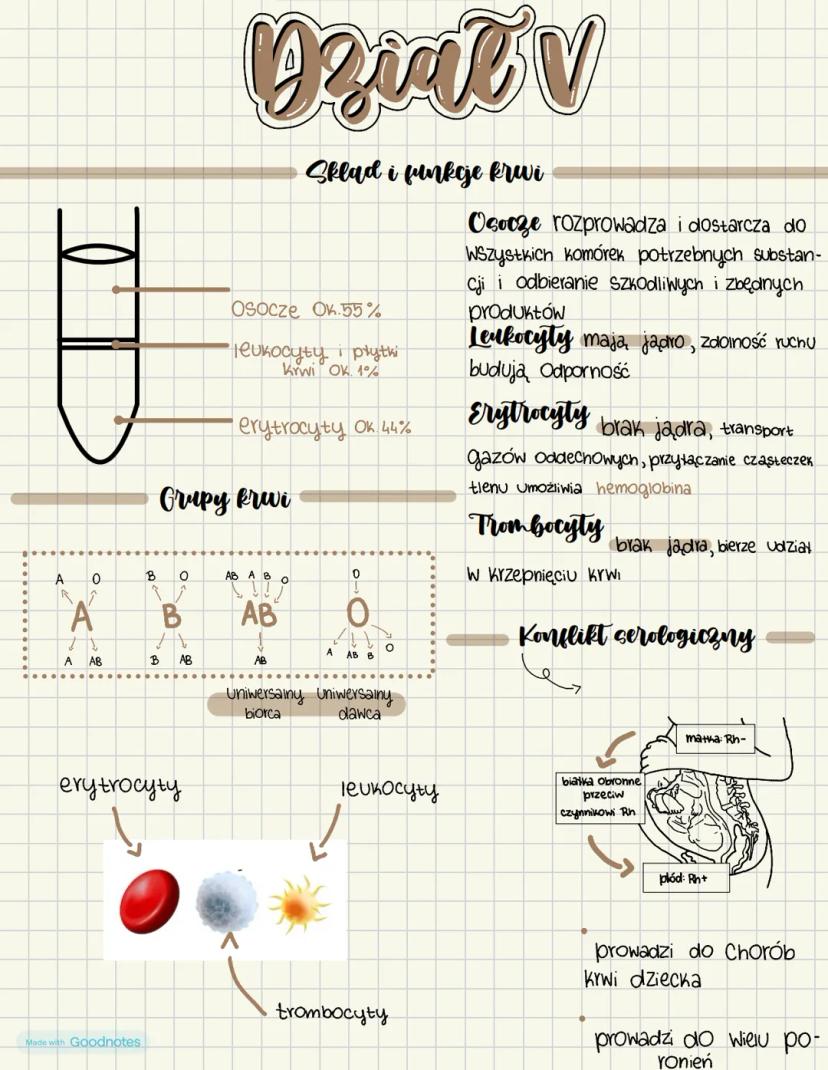 Dział V
Skład i funkcje krwi
osocze ok. 55%
leukocyty i płytki
krwi ok. 1%
erytrocyty ok. 44%
Osocze rozprowadza i dostarcza do
wszystkich komórek potrzebnych substan-
cji i odbieranie szkodliwych i zbędnych
produktów
Leukocyty mają jądro, zdolność ruchu
budują odporność
Erytrocyty brak jądra, transport
gazów oddechowych, przyłączanie cząsteczek
tlenu umożliwia hemoglobina
Trombocyty brak jądra, bierze udział
w krzepnięciu krwi
Grupy krwi
A O B O AB A B O O
A B AB O
A AB B AB AB A AB B O
uniwersalny uniwersalny
biorca dawca
Konflikt serologiczny
matka: Rh-
białka obronne
przeciw
czynnikowi Rh
płód: Rh+
prowadzi do chorób
krwi dziecka
prowadzi do wielu po-
ronień
erytrocyty leukocyty
trombocyty
Made with Goodnotes